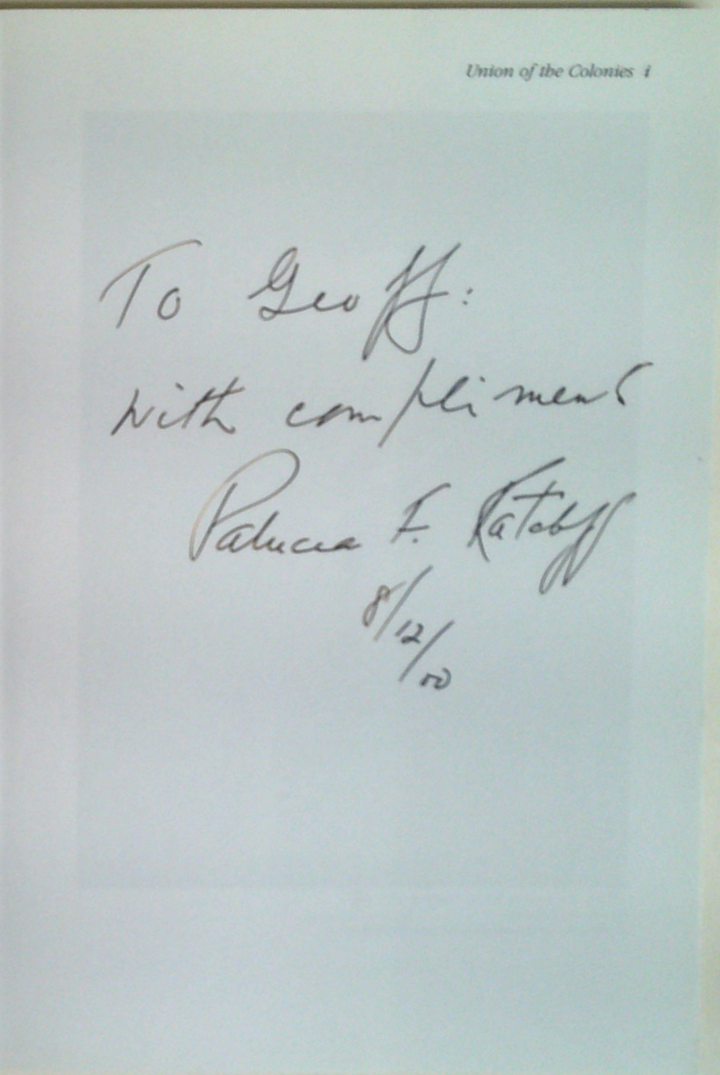 Union of the Colonies i
To Geoff:
with compliment
Patricia F. Katoff
8/12/00